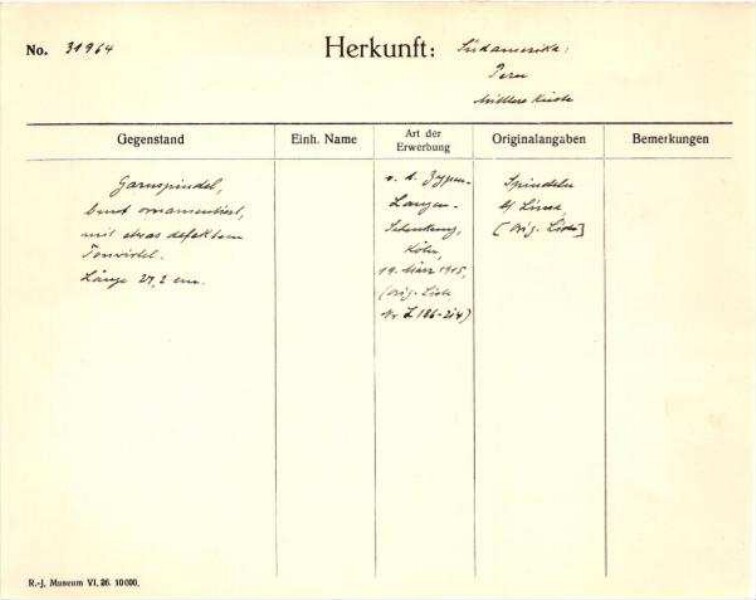 No. 31964
Herkunft: Südamerika,
Peru
Mittlere Küste
Gegenstand
Einh. Name
Art der Erwerbung
Originalangaben
Bemerkungen
Garnspindel,
bunt ornamentiert,
mit etwas defektem
Tonwirtel.
Länge 27,2 cm.
v. d. Zypen-
Langen-
Schenkung,
Köln,
19. März 1905,
(orig. Liste
Nr. L 186-214)
Spindeln
bei Lima
[Orig. Liste]
R.-J. Museum VI. 26. 10000.